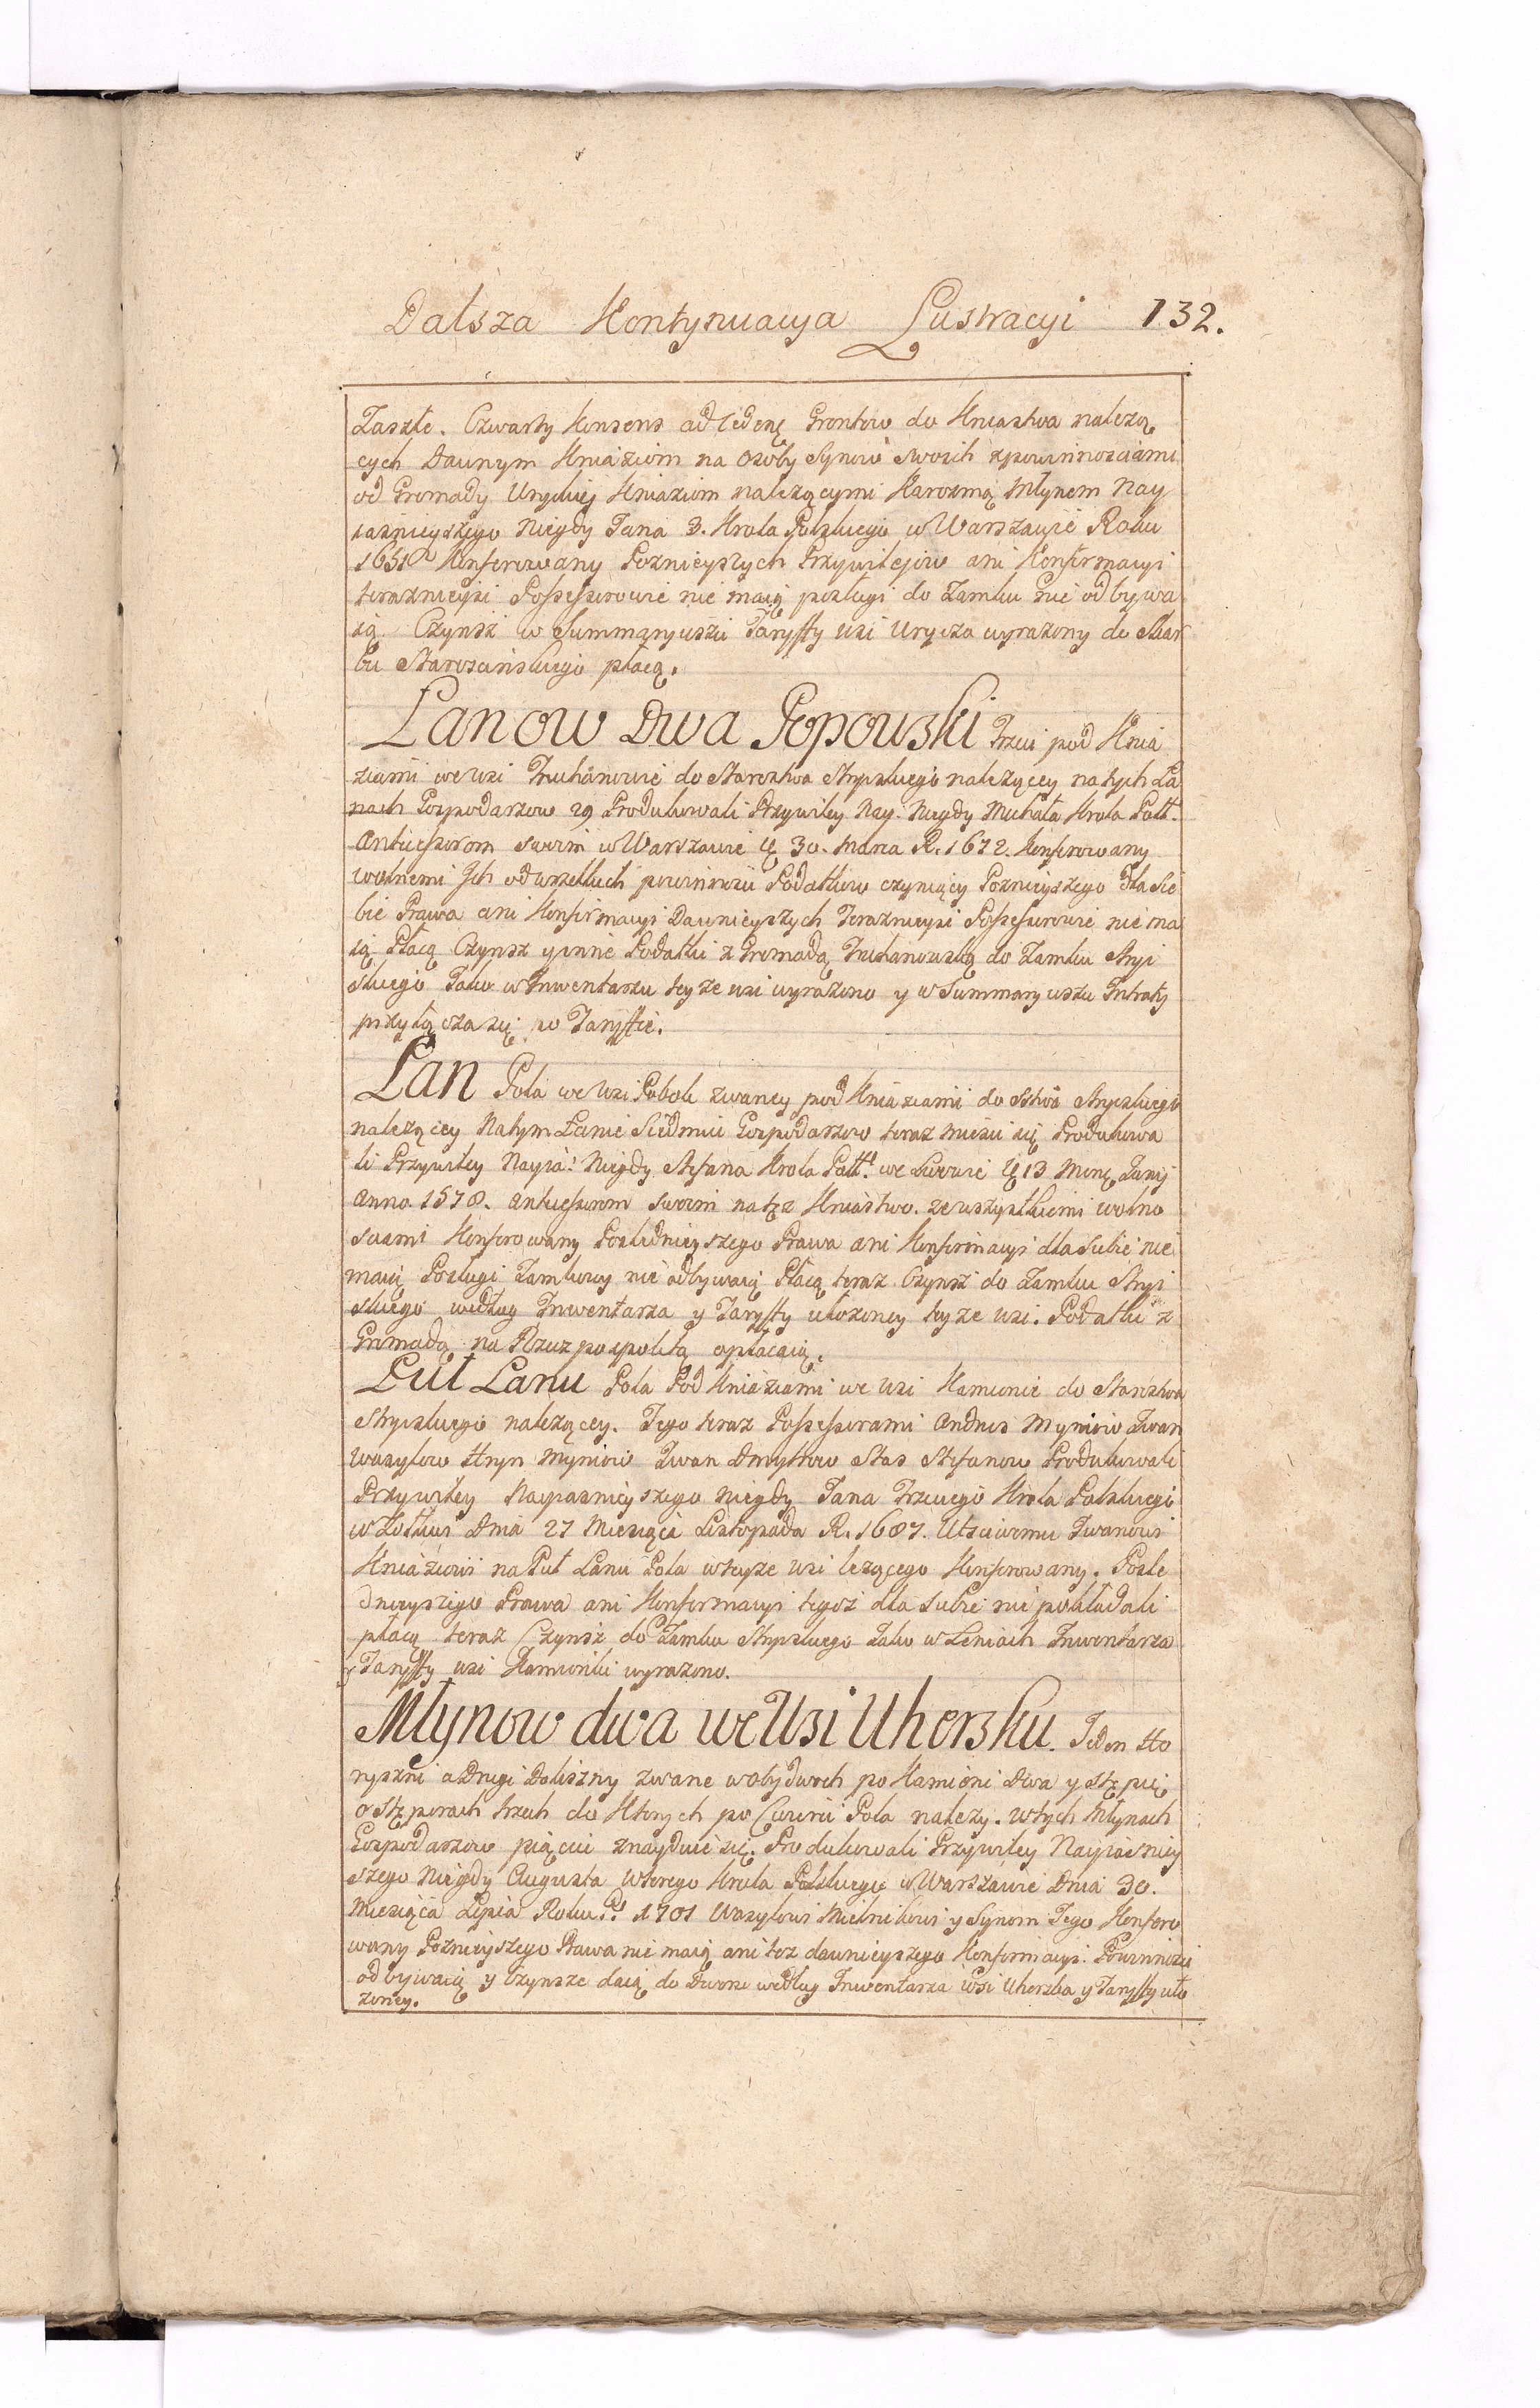 Dalsza Kontynuacya Lustracyi 132.
Zaszłe. Czwarty Konsens ad Cedenę Grontow do Kniastwa nalezą
cych Dawnym Kniaziom na Osoby Synow Swoich zpowinnosciami
od Gromady Uryckiej Kniaziom nalezącymi Karczmą Młynem Nay
iasnieyszego Niegdy Jana 3. Krola Polskiego w Warszawie Roku
1681 Konferowany Poznieyszych Przywilejow ani Konfirmacyi
teraznieysi Possessorowie nie maią posługi do Zamku nie odbywa
ią. Czynsz w Summaryuszu Taryffy wsi Urycza wyrazony do Skar
bu Starościńskiego płacą.
Lanow Dwa Popowski Trzeci pod Knia
ziami we wsi Truchanowie do Starostwa Stryiskiego nalezącey na tych La
nach Gospodarzow 29 Produkowali Przywiley Nay. Niegdy Michała Krola Poll.
Antecessorom swoim w Warszawie 30. Marca R. 1672. Konferowany
wolnemi Ich od wszelkich powinnosci Podatkow czyniący Poznieyszego dla Sie
bie Prawa ani Konfirmacyi Dawnieyszych Teraznieysi Possessorowie nie ma
ią Płacą Czynsz y inne Podatki z Gromadą Truchanowską do Zamku Stryi
skiego Jako w Inwentarzu teyze wsi wyrazono y w Summaryuszu Intraty
przyłącza się po Taryffie.
Lan Pola we Wsi Pobok zwaney pod Kniaziami do Sstwa Stryiskiego
nalezącey Natym Lanie Siedmiu Gospodarzow teraz miesci się Produkowa
li Przywiley Nayia: Niegdy Stefana Krola Poll: we Lwowie 13 Mene Junij
Anno. 1578. Antecessorom swoim natęz Kniastwo. zewszystkiemi wolno
sciami Konferowany Poslednieyszego Prawa ani Konfirmacyi dla siebie nie
maią Posługi Zamkowey nie odbywaią Płacą teraz Czynsz do Zamku Stryi
skiego według Inwentarza y Taryffy ułozoney teyze wsi. Podatki z
Gromadą na Rzeczpospolitą opłacaią.
Puł Lanu Pola Pod Kniaziami we wsi Kamionce do Starostwa
Stryiskiego nalezącey. Tego teraz Possessorami Andrus Myniow Iwan
Wasylow Hryn Myniow Iwan Dmytrow Stas Stefanow Produkowali
Przywiley Nayiasnieyszego niegdy Jana Trzeciego Krola Polskiego
w Zołkwi Dnia 27 Miesiąca Listopada R. 1687. Utsciwemu Iwanowi
Kniaziowi na Puł Lanu Pola w teyze wsi lezącego Konferowany. Posle
dnieyszego Prawa ani Konfirmacyi tegoz dla siebie nie pokładali
płacą teraz Czynsz do Zamku Stryiskiego Jako w Leniach Inwentarza
y Taryffy wsi Kamionki wyrazono.
Młynow dwa we Wsi Uhersku. Jeden Ho
ryszni a Drugi Doliszny zwane w obydwoch po Kamieni Dwa y stępie
o stęporach trzech do Ktorych po Cwierci Pola nalezy. w tych Młynach
Gospodarzow pięciu znayduie się. Produkowali Przywiley Nayiasniey
szego Niegdy Augusta Wtorego Krola Polskiego w Warszawie Dnia 30.
Miesiąca Lipca Roku P: 1701 Wasylowi Mielnikowi y Synom Jego Konfero
wany Poznieyszego Prawa nie maią ani tez dawnieyszego Konfirmacyi. Powinnosci
odbywaią y Czynsze daią do Dworu według Inwentarza wsi Uherska y Taryffy uło
zoney.